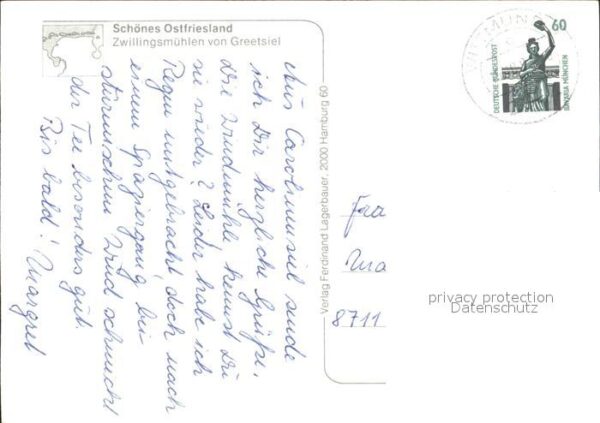 Schönes Ostfriesland
Zwillingsmühlen von Greetsiel
Aus Carolinensiel sende
ich Dir herzliche Grüße.
Die Windmühle kennst Du
sie wieder? Leider habe ich
Regen mitgebracht doch nach
einem Spaziergang bei
stürmischem Wind schmeckt
der Tee besonders gut.
Bis bald! Margret
Verlag Ferdinand Lagerbauer, 2000 Hamburg 60
60
DEUTSCHE BUNDESPOST
BAVARIA MÜNCHEN
Fra
Ma
8711
privacy protection
Datenschutz